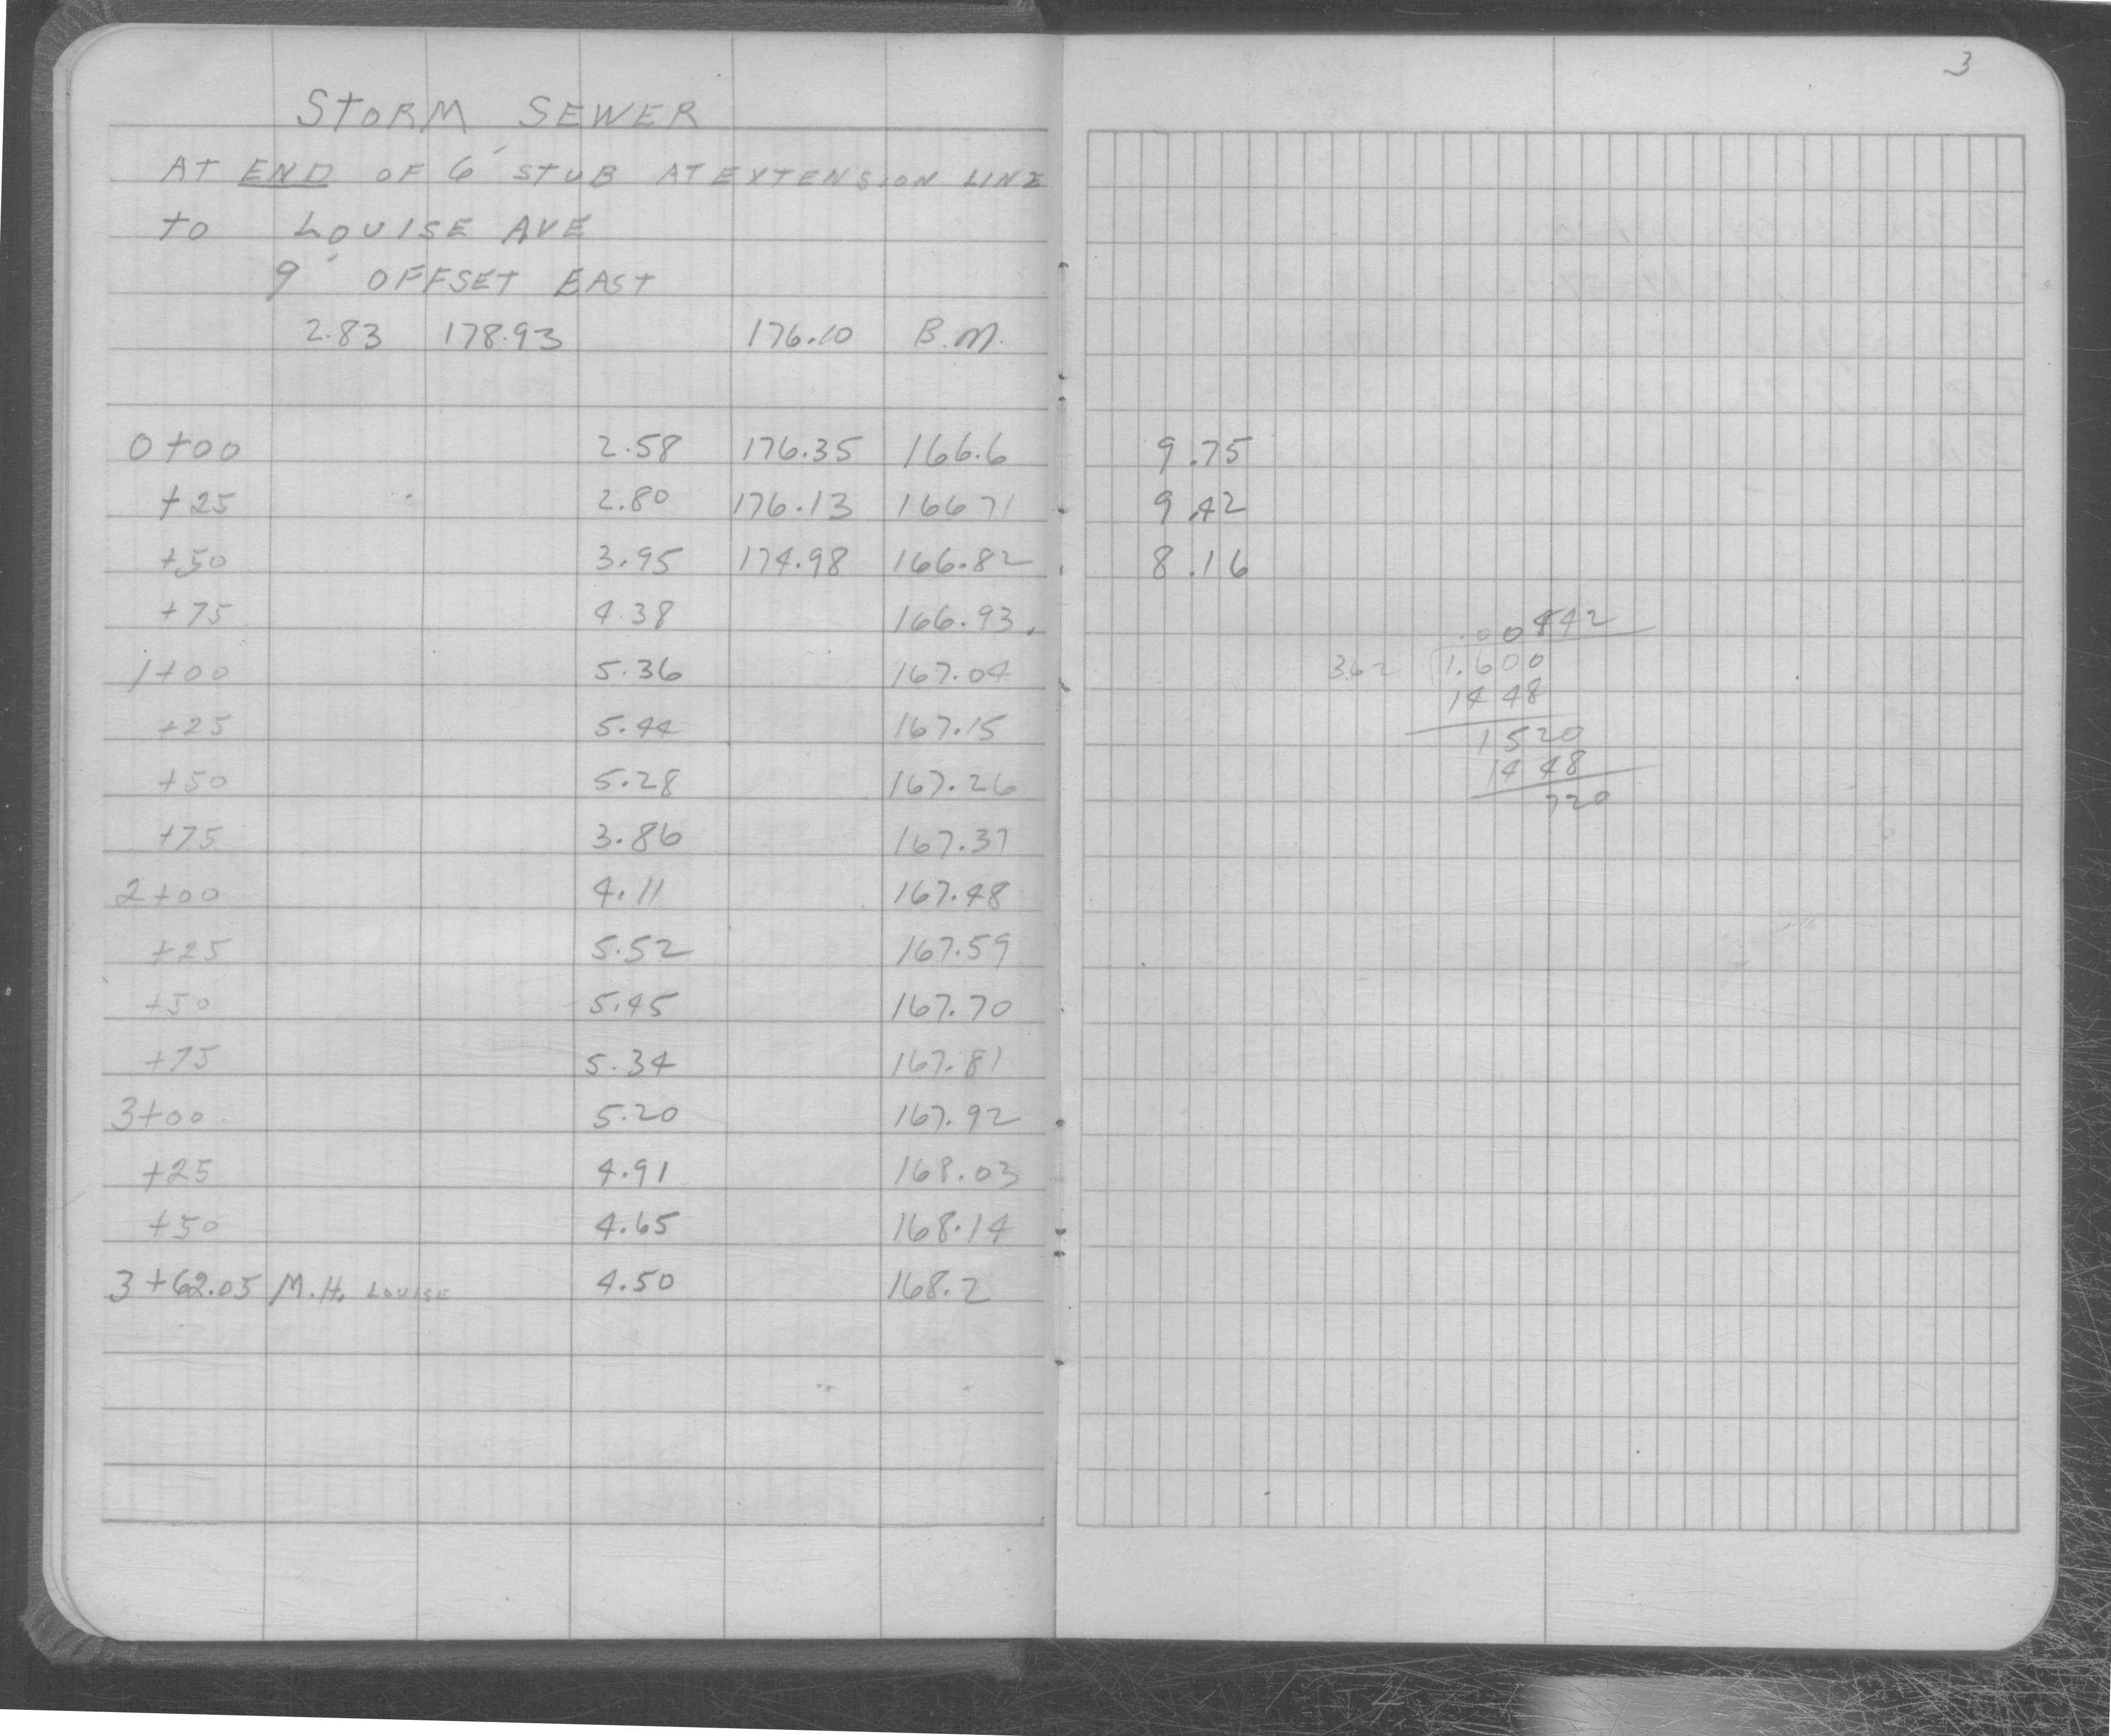 STORM SEWER
AT END OF 6' STUB AT EXTENSION LINE
TO LOUISE AVE
9' OFFSET EAST
2.83 178.93 176.10 B.M.
0+00 2.58 176.35 166.6
+25 2.80 176.13 166 71
+50 3.95 174.98 166.82
+75 4.38 166.93
1+00 5.36 167.04
+25 5.44 167.15
+50 5.28 167.26
+75 3.86 167.37
2+00 4.11 167.48
+25 5.52 167.59
+50 5.45 167.70
+75 5.34 167.81
3+00 5.20 167.92
+25 4.91 168.03
+50 4.65 168.14
3+62.05 M.H. LOUISE 4.50 168.2
3
9.75
9.42
8.16
.00442
362 1.600
1448
1520
1448
720